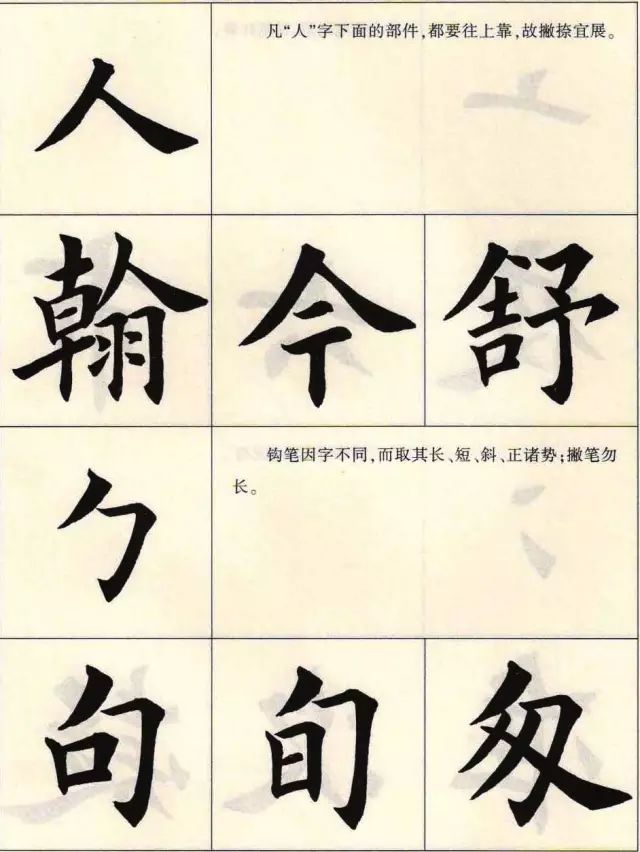 人
凡“人”字下面的部件，都要往上靠，故撇捺宜展。
翰 今 舒
勹
钩笔因字不同，而取其长、短、斜、正诸势；撇笔勿
长。
句 旬 匁